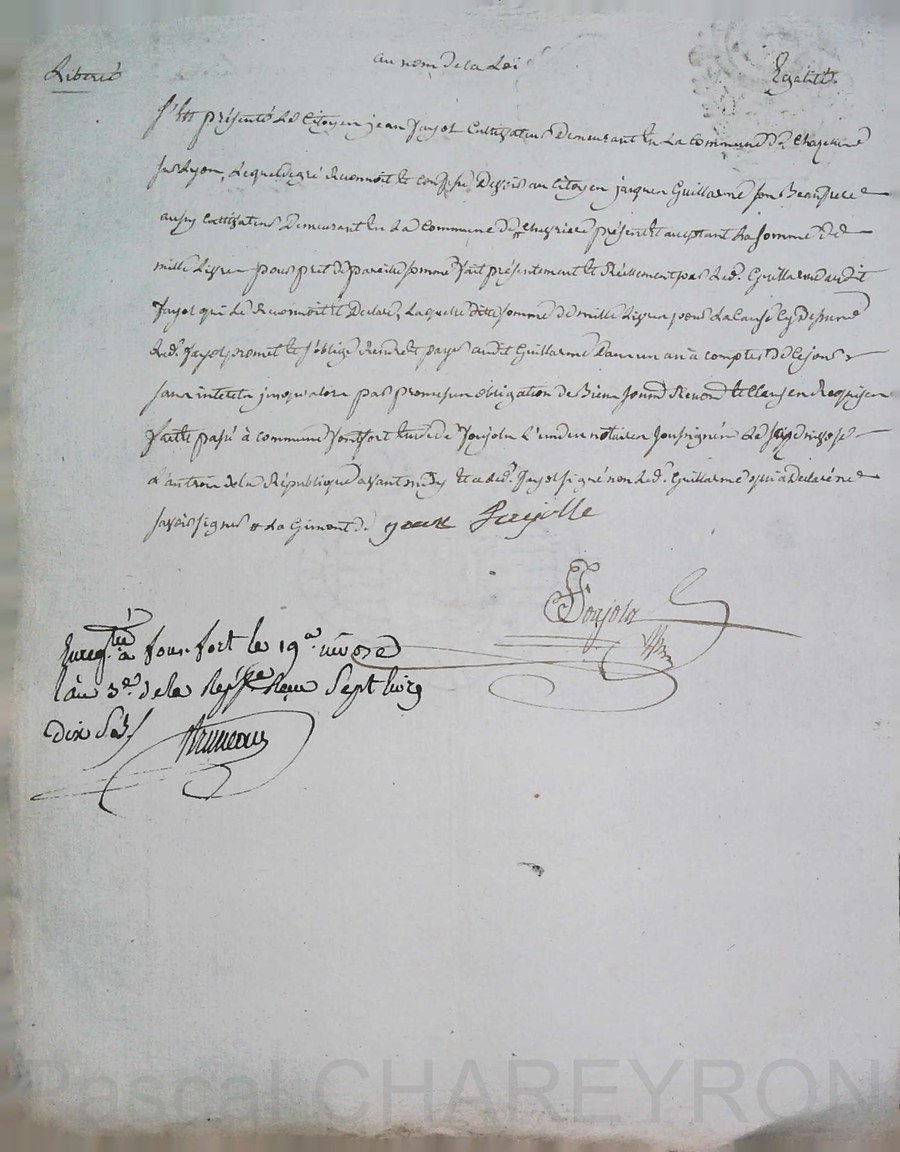 Liberté
au nom de la Loi
Egalité
S'est présenté Le Citoyen jean fayol Cultivateur Demeurant En La Commune De Chazelle
Sur Lyon, Lequel de gré Reconnoit et confesse Devoir au Citoyen jacques Guillarme son Beaufrere
aussy Cultivateur Demeurant En La Commune de # Chevriere présent et acceptant La somme De
mille Livres pour prêt de pareille somme fait présentement et Réellement par Led. Guillarme audit
fayol qui Le Reconnoit et Declare, Laquelle ditte somme De mille Livres pour La Cause Cy Dessus
Led. fayol promet et s'oblige Rendre et payer audit Guillarme Dans un an à compter De Ce jour
sans interets jusqu'alors par promesse obligation de Biens soumd. Renond. et Clauses Requises
faitte passé à commune fontfort Etude de Poujola L'un des notaires soussignés Le nivose
L'an trois de la République avant midy Et a Led. fayol signé non Led. Guillarme qui à Declaré ne
savoir signer # La Gimont de jean Fayolle
Poujola
Enregtré à fonsfort le 19e nivose
l'an 3e de la Repque Reçu Sept livres
dix Sols
Bruneau
Pascal CHAREYRON